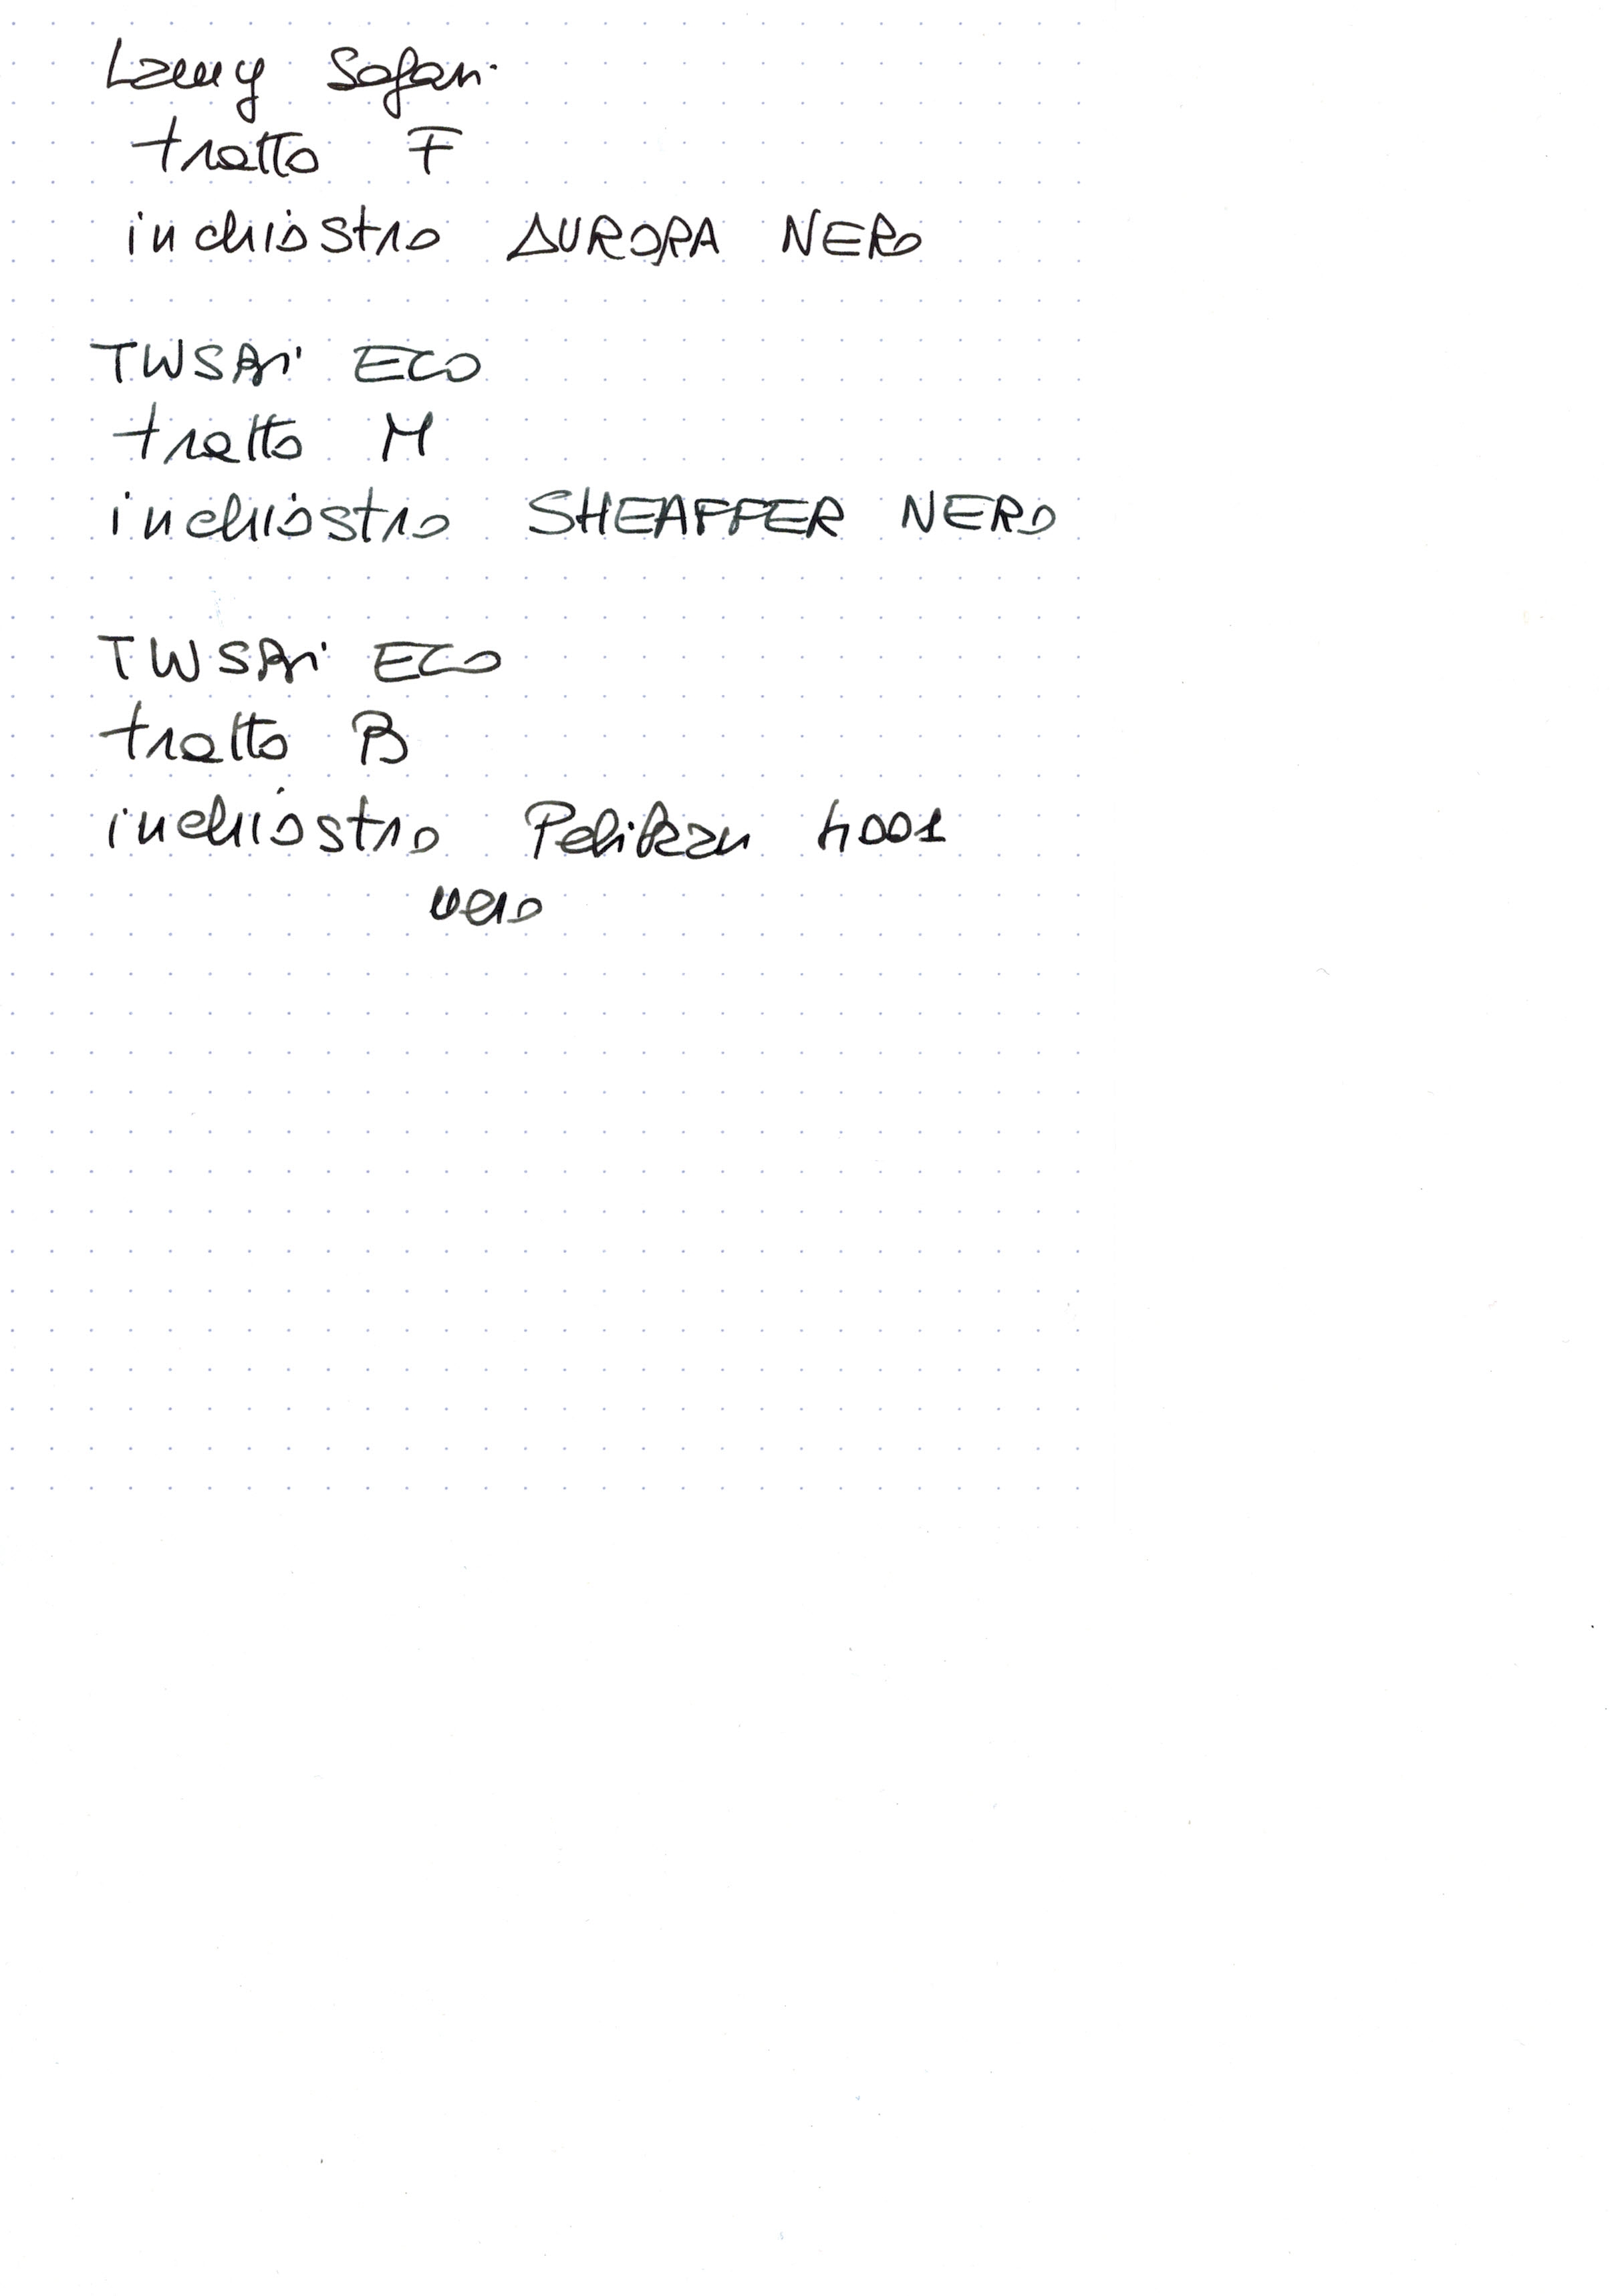 Lamy Safari
tratto F
inchiostro AURORA NERO
TWSBi ECO
tratto M
inchiostro SHEAFFER NERO
TWSBi ECO
tratto B
inchiostro Pelikan 4001
nero